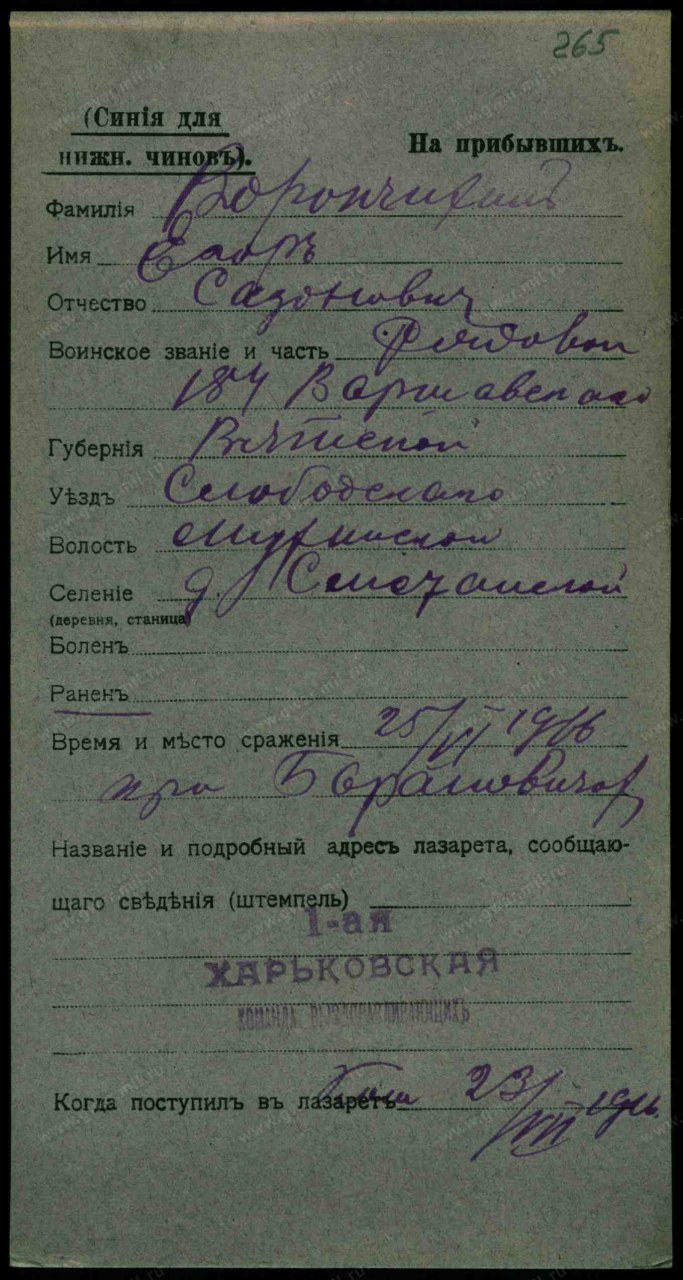 265
(Синія для
нижн. чиновъ).
На прибывшихъ.
Фамилія Ворончихинъ
Имя Егоръ
Отчество Сазонович
Воинское званіе и часть Рядовой
184 Варшавскаго
Губернія Вятской
Уѣздъ Слободскаго
Волость Мухинской
Селеніе д.
(деревня, станица)
Боленъ
Раненъ
Время и мѣсто сраженія 25/VI 1916
при Барановичах
Названіе и подробный адресъ лазарета, сообщаю-
щаго свѣдѣнія (штемпель)
1-ая
ХАРЬКОВСКАЯ
КОМАНДА ВЫЗДОРАВЛИВАЮЩИХЪ
Когда поступилъ въ лазаретъ 23/VII 1916.